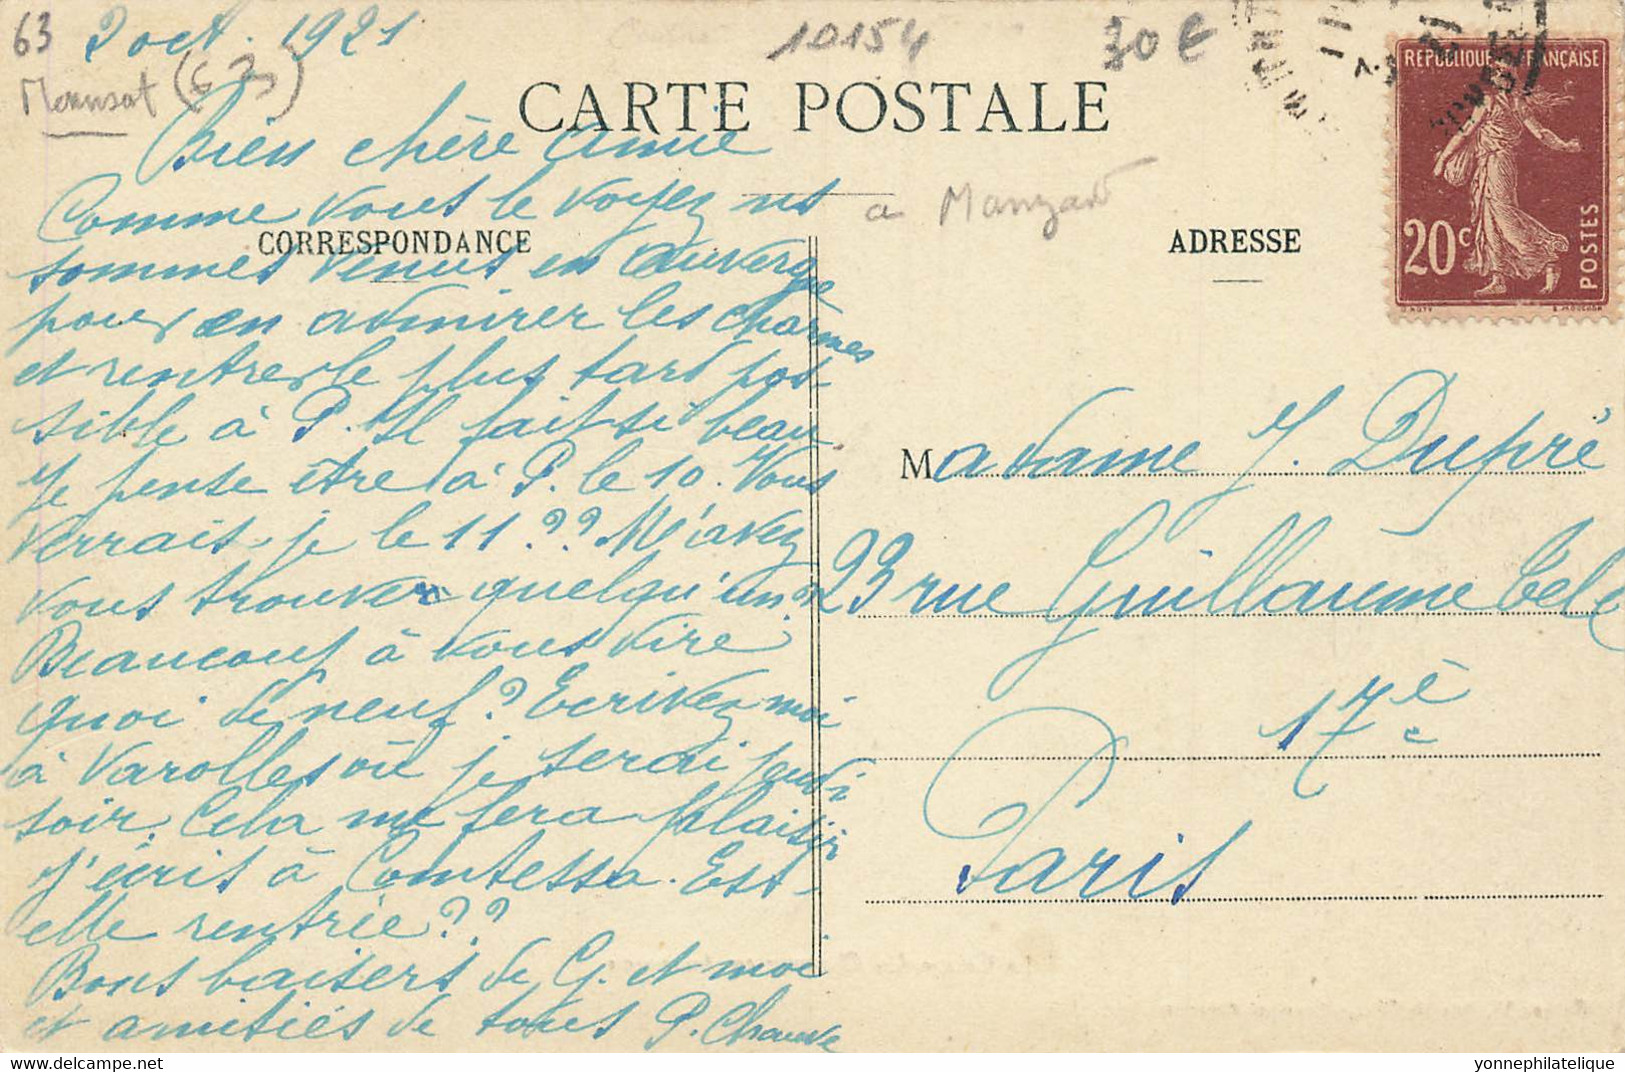 63
2 oct. 1921
10154
30 €
(63)
REPUBLIQUE FRANÇAISE
20c
POSTES
CARTE POSTALE
Bien chère amie
Comme vous le voyez ns
a Manzat
CORRESPONDANCE
ADRESSE
sommes venus en Auvergne
pour en admirer les charmes
et rentrer le plus tard pos-
sible à P. Il fait si beau
Je pense être à P. le 10. Vous
verrais-je le 11 ?? M'avez
vous trouver quelqu'un
Beaucoup à vous dire
quoi de neuf ? Ecrivez moi
à Varolles où je serai jeudi
soir. Cela me fera plaisir
J'écris à Comtessa. Est-
elle rentrée ??
Bons baisers de G. et moi
et amitiés de tous P. Chauve
Madame J. Dupré
23 rue Guillaume Tell
17è
Paris
delcampe.net
yonnephilatelique